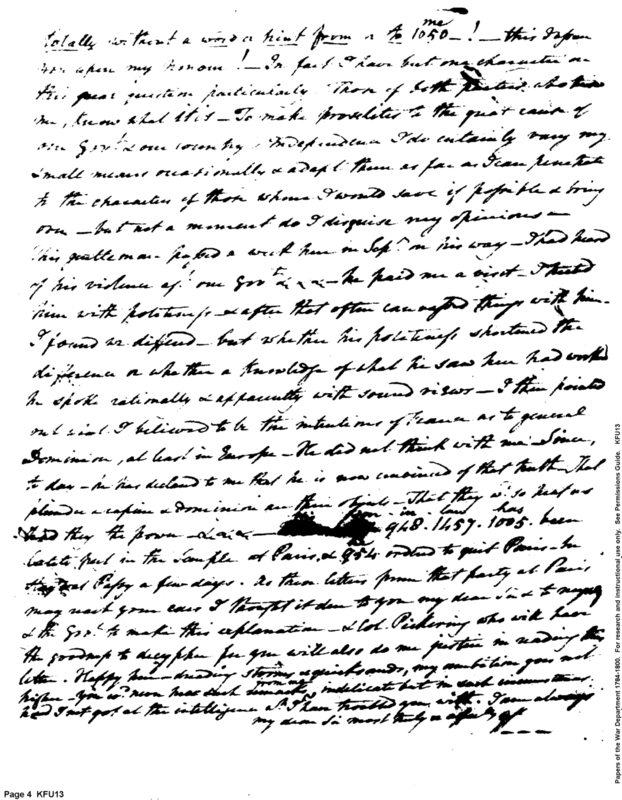 totally without a word or hint from me to 1050 – ! – this I
upon my honour! – In fact I have but one character on
this great question particularly. Those of both parties who know
me, know what it is – To make proselites to the great cause of
our Govt. & our country's Independence I do certainly vary my
small means occasionally & adapt them as far as I can penetrate
to the characters of those whom I would save if possible & bring
over – but not a moment do I disguise my opinions –
This gentleman passed a week here in Sepr. on his way – I had heard
of his violence agt. our Govt. & & & – he paid me a visit – I treated
him with politeness & after that often canvassed things with him –
I found we differed – but whether his politeness shortened the
difference or whether a knowledge of what he saw here had worked
he spoke rationally & apparently with sound views – I then pointed
out what I believed to be the intentions of France as to general
Dominion, at least in Europe – He did not think with me – Since,
to day – he has declared to me that he is now convinced of that truth – That
plunder & rapine & dominion are their objects – That they wd. so treat us
had they the power – & & &
son - in - law has
948 . 1457 . 1005 . been
lately put in the Temple at Paris, & 954 ordered to quit Paris – he
Passy a few days. As then letters from that party at Paris
may reach your ears I thought it due to you my dear Sir & to myself
& the Govt. to make this explanation – & Col. Pickering who will have
the goodness to decypher for you will also do me justice in reading this
letter. Happy here – dreading storms & quicksands, my ambition goes not
higher – You wd. never have such remarks from me, indelicate but in such circumstances
had I not got at the intelligence I have troubled you with. I am always
my dear Sir most truly & affecty.
Page 4 KFU13
Papers of the War Department 1784-1800. For research and instructional use only. See Permissions Guide. KFU13